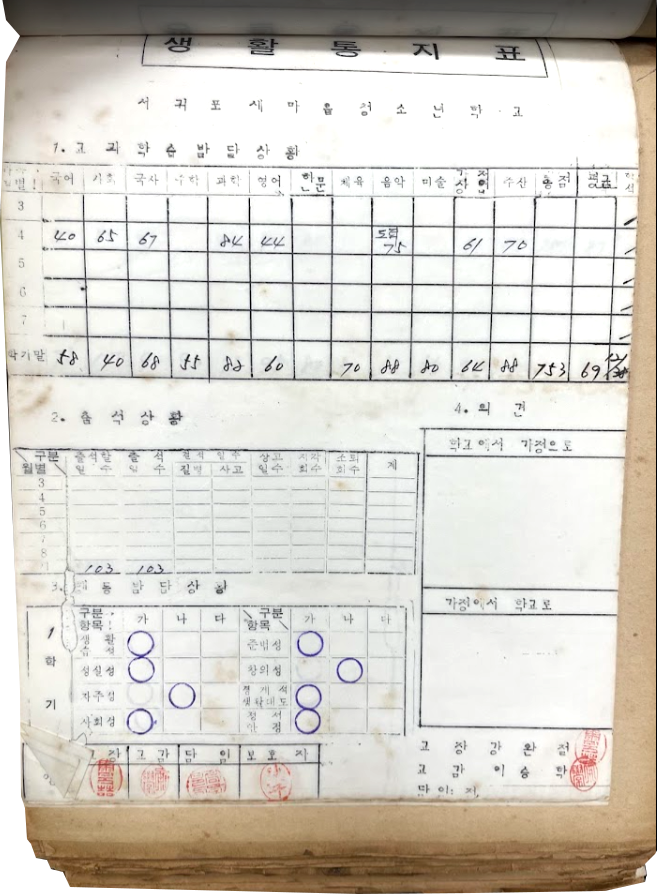 생 활 통 지 표
서 귀 포 새 마 음 청 소 년 학 교
1. 교 과 학 습 발 달 상 황
월별 국어 사회 국사 수학 과학 영어 한문 체육 음악 미술 주산 총점 평균
3
4 40 65 67 84 44 도덕 75 61 70
5
6
7
학기말 58 40 68 55 82 60 70 88 80 64 88 753 69
2. 출 석 상 황
4. 의 견
구분 월별 출석할 일수 출석 일수 결석 일수 질병 사고 상고 일수 지각 회수 조퇴 회수 계
3
4
5
6
7
8
103 103
학교에서 가정으로
가정에서 학교로
3. 행 동 발 달 상 황
구분 항목 가 나 다 구분 항목 가 나 다
1 학 기
생활 습성 준법성
성실성 창의성
자주성 경제적 생활태도
사회성 정서 안정
교장 교감 담임 보호자
인
교 장 강 완 점
교 감 이 승 학
담 임